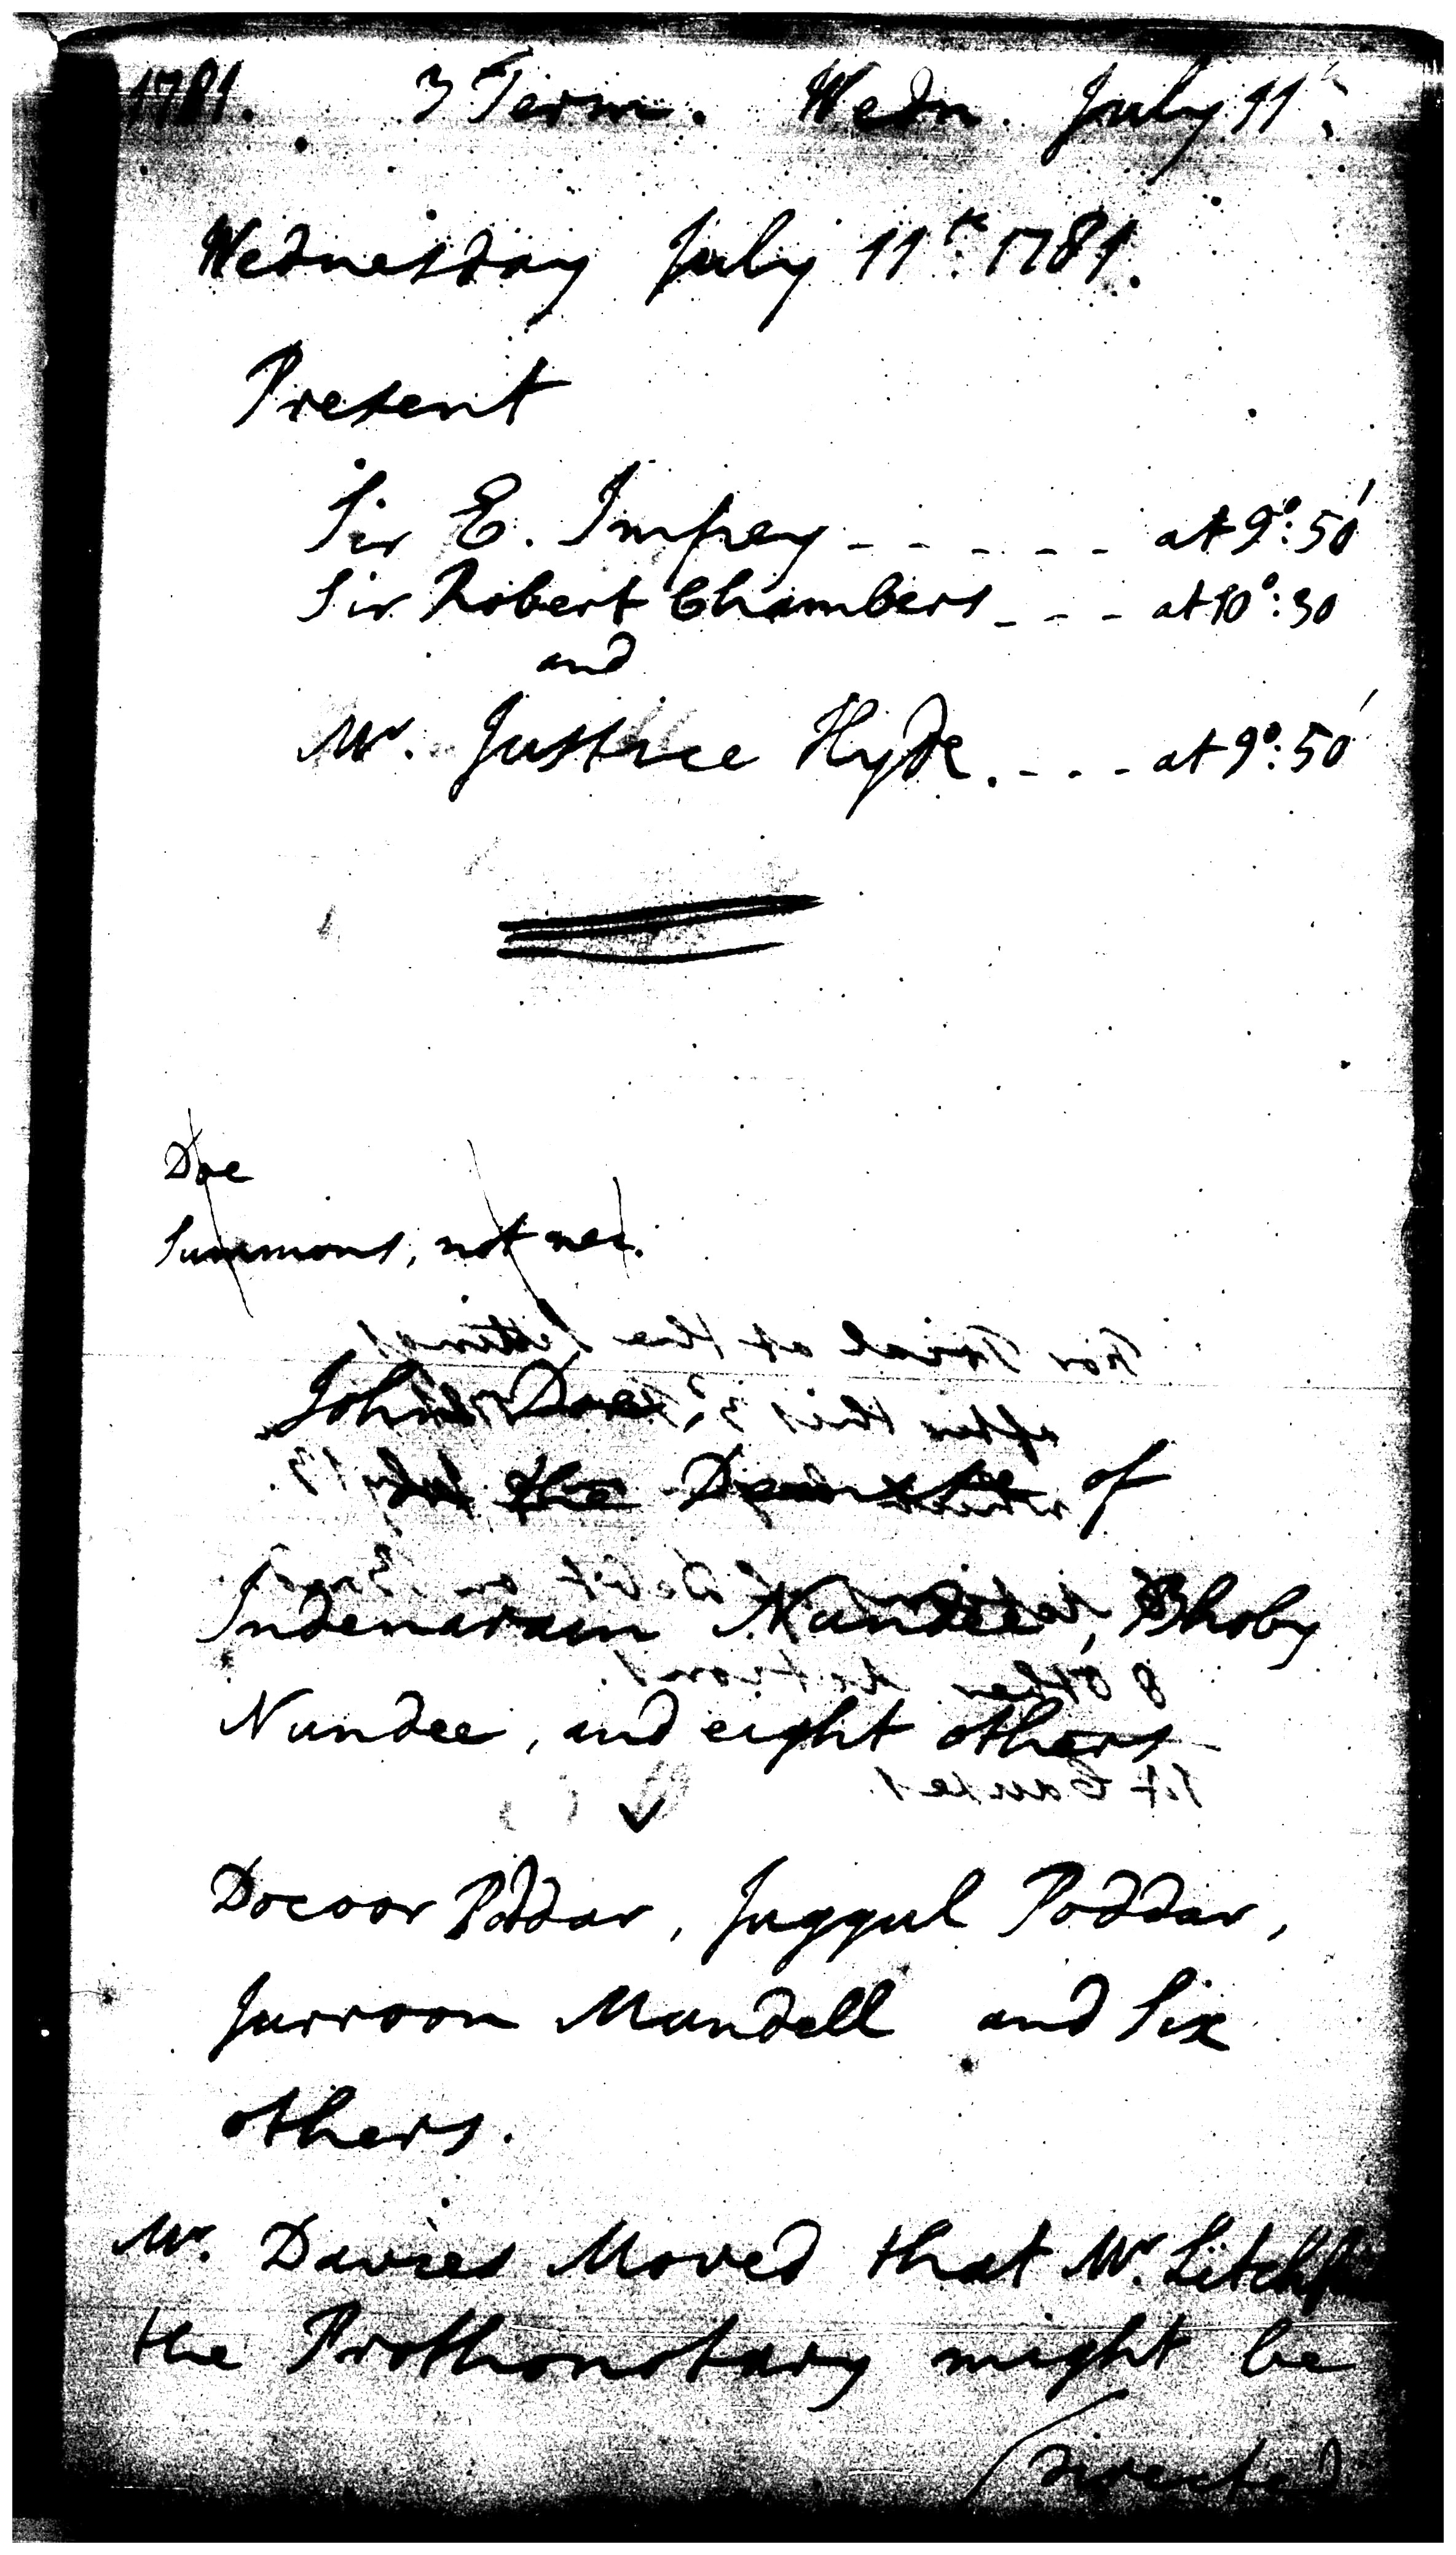 1781. 3 Term. Wedn. July 11th.
Wednesday July 11th. 1781.
Present
Sir E. Impey - - - - - - at 9°: 50'
Sir Robert Chambers - - - at 10°: 30
and
Mr. Justice Hyde. - - - at 9°: 50'
Doe
Summons, not
John Doe
the of
Indenaram Nundee, Bhoby
Nundee, and eight others
v
Docoor Poddar, Juggul Poddar,
Jurroon Mundell and Six
others.
Mr. Davies Moved that Mr.
the Prothonotary might be
/directed